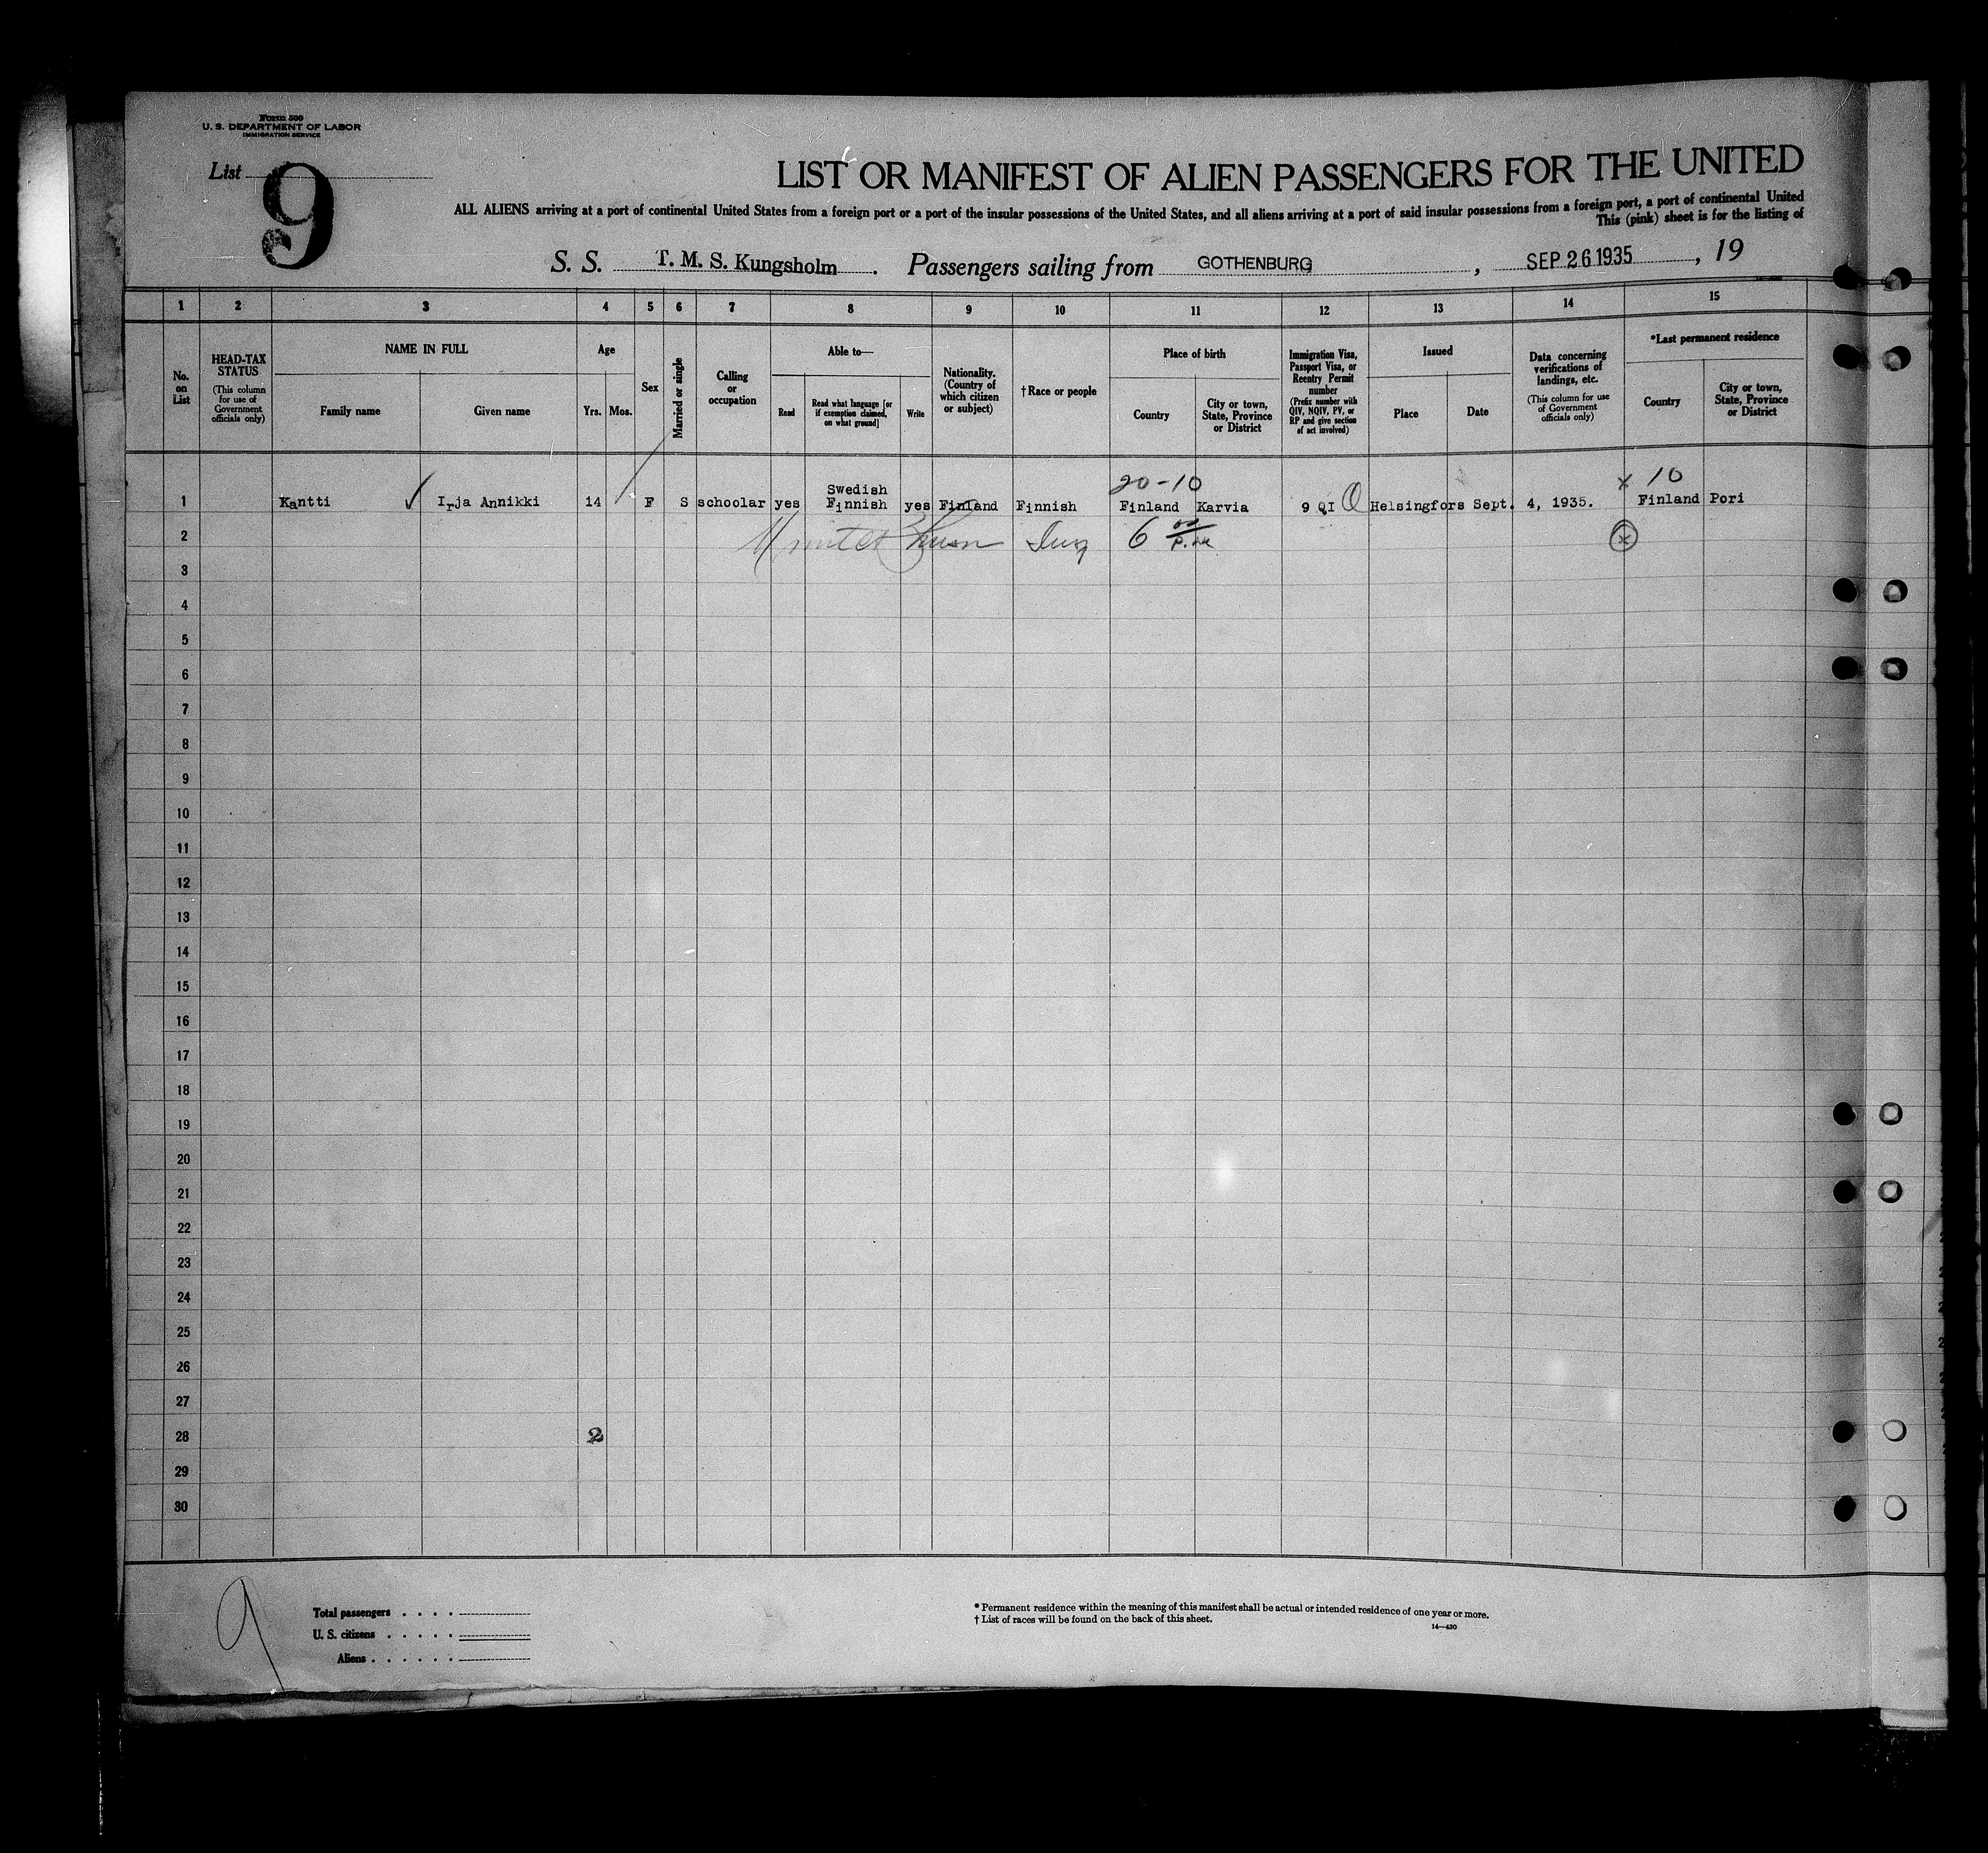 Form 500
U. S. DEPARTMENT OF LABOR
IMMIGRATION SERVICE
List 9
LIST OR MANIFEST OF ALIEN PASSENGERS FOR THE UNITED
ALL ALIENS arriving at a port of continental United States from a foreign port or a port of the insular possessions of the United States, and all aliens arriving at a port of said insular possessions from a foreign port, a port of continental United
This (pink) sheet is for the listing of
S. S. T. M. S. Kungsholm. Passengers sailing from GOTHENBURG, SEP 26 1935, 19
1 2 3 4 5 6 7 8 9 10 11 12 13 14 15
No. on List
HEAD-TAX STATUS
(This column for use of Government officials only)
NAME IN FULL
Family name
Given name
Age
Yrs. Mos.
Sex
Married or single
Calling or occupation
Able to—
Read
Read what language [or if exemption claimed, on what ground]
Write
Nationality. (Country of which citizen or subject)
†Race or people
Place of birth
Country
City or town, State, Province or District
Immigration Visa, Passport Visa, or Reentry Permit number
(Prefix number with QIV, NQIV, PV, or RP and give section of act involved)
Issued
Place
Date
Data concerning verifications of landings, etc.
(This column for use of Government officials only)
*Last permanent residence
Country
City or town, State, Province or District
20-10
x 10
1 Kantti ✓ Irja Annikki 14 F S schoolar yes Swedish Finnish yes Finland Finnish Finland Karvia 9 QI Helsingfors Sept. 4, 1935. Finland Pori
2
6
x
3
4
5
6
7
8
9
10
11
12
13
14
15
16
17
18
19
20
21
22
23
24
25
26
27
28 2
29
30
9
Total passengers . . . .
U. S. citizens . . . . .
Aliens . . . . . .
* Permanent residence within the meaning of this manifest shall be actual or intended residence of one year or more.
† List of races will be found on the back of this sheet.
14—430